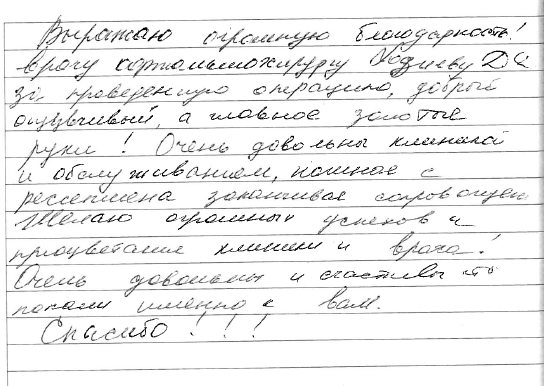 Выражаю огромную благодарность!
врачу офтальмохирургу
за проведенную операцию, добрый
отзывчивый, а главное золотые
руки! Очень довольны клиникой
и обслуживанием, начиная с
ресепшена заканчивая
Желаю огромных успехов и
процветания клиники и врача!
Очень довольны и счастливы что
попали именно к вам.
Спасибо!!!